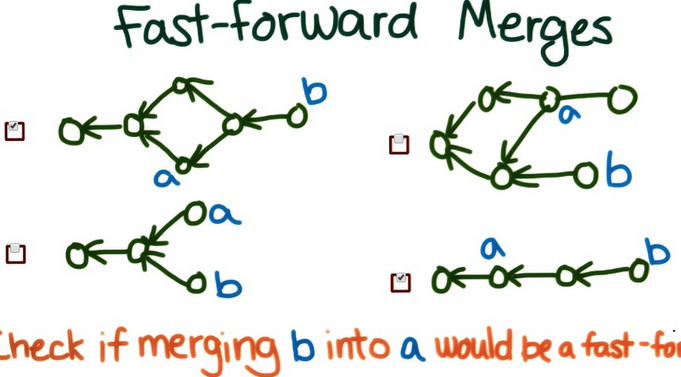 Fast-forward Merges
b
a
a
b
a
b
a
b
Check if merging b into a would be a fast-for